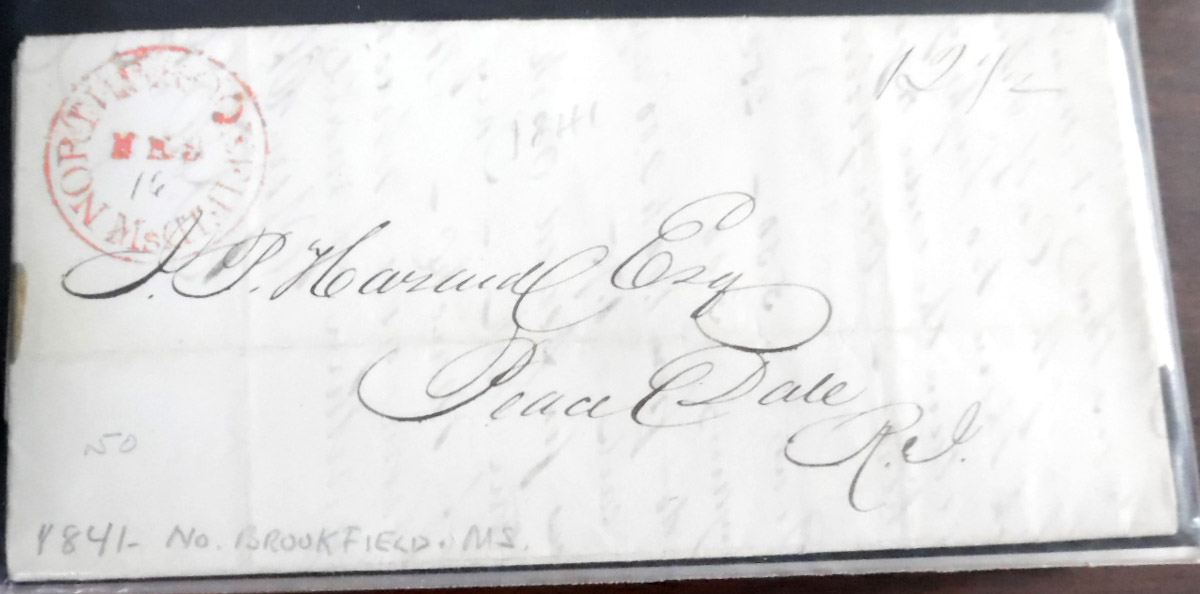 NORTH BROOKFIELD
16
Ms.
12 1/2
1841
J. P. Hazard Esq
Peace Dale
R. I.
50
1841- No. BROOKFIELD. MS.